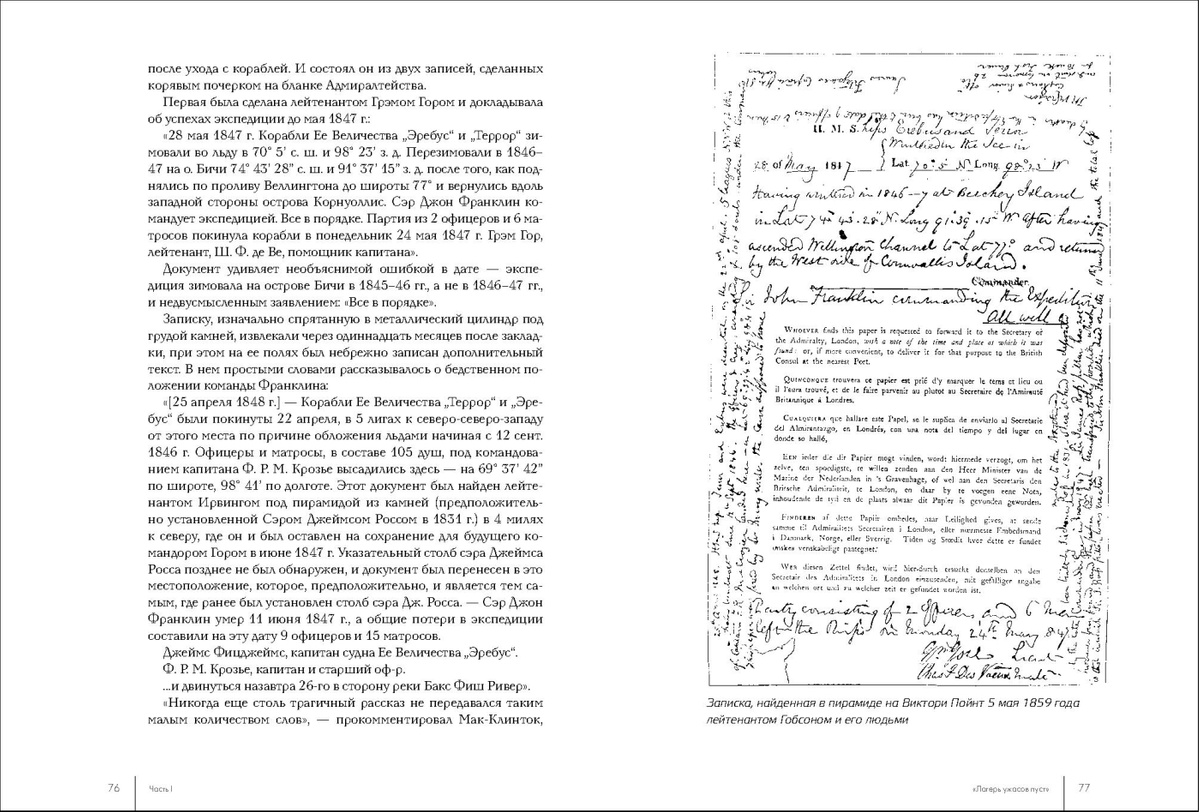 после ухода с кораблей. И состоял он из двух записей, сделанных
корявым почерком на бланке Адмиралтейства.
Первая была сделана лейтенантом Грэмом Гором и докладывала
об успехах экспедиции до мая 1847 г.:
«28 мая 1847 г. Корабли Ее Величества „Эребус“ и „Террор“ зи-
мовали во льду в 70° 5′ с. ш. и 98° 23′ з. д. Перезимовали в 1846–
47 на о. Бичи 74° 43′ 28″ с. ш. и 91° 37′ 15″ з. д. после того, как под-
нялись по проливу Веллингтона до широты 77° и вернулись вдоль
западной стороны острова Корнуоллис. Сэр Джон Франклин ко-
мандует экспедицией. Все в порядке. Партия из 2 офицеров и 6 ма-
тросов покинула корабли в понедельник 24 мая 1847 г. Грэм Гор,
лейтенант, Ш. Ф. де Ве, помощник капитана».
Документ удивляет необъяснимой ошибкой в дате — экспе-
диция зимовала на острове Бичи в 1845–46 гг., а не в 1846–47 гг.,
и недвусмысленным заявлением: «Все в порядке».
Записку, изначально спрятанную в металлический цилиндр под
грудой камней, извлекали через одиннадцать месяцев после заклад-
ки, при этом на ее полях был небрежно записан дополнительный
текст. В нем простыми словами рассказывалось о бедственном по-
ложении команды Франклина:
«[25 апреля 1848 г.] — Корабли Ее Величества „Террор“ и „Эре-
бус“ были покинуты 22 апреля, в 5 лигах к северо-северо-западу
от этого места по причине обложения льдами начиная с 12 сент.
1846 г. Офицеры и матросы, в составе 105 душ, под командова-
нием капитана Ф. Р. М. Крозье высадились здесь — на 69° 37′ 42″
по широте, 98° 41′ по долготе. Этот документ был найден лейте-
нантом Ирвингом под пирамидой из камней (предположитель-
но установленной Сэром Джеймсом Россом в 1831 г.) в 4 милях
к северу, где он и был оставлен на сохранение для будущего ко-
мандором Гором в июне 1847 г. Указательный столб сэра Джеймса
Росса позднее не был обнаружен, и документ был перенесен в это
местоположение, которое, предположительно, и является тем са-
мым, где ранее был установлен столб сэра Дж. Росса. — Сэр Джон
Франклин умер 11 июня 1847 г., а общие потери в экспедиции
составили на эту дату 9 офицеров и 15 матросов.
Джеймс Фицджеймс, капитан судна Ее Величества „Эребус“.
Ф. Р. М. Крозье, капитан и старший оф-р.
...и двинуться назавтра 26-го в сторону реки Бакс Фиш Ривер».
«Никогда еще столь трагичный рассказ не передавался таким
малым количеством слов», — прокомментировал Мак-Клинток,
76
Часть I
H. M. Ships Erebus and Terror
Wintered in the Ice in
28 of May 1847 Lat. 70° 5' N Long. 98° 23' W
Having wintered in 1846–7 at Beechey Island
in Lat 74° 43' 28" N Long 91° 39' 15" W after having
ascended Wellington Channel to Lat 77° and returned
by the West side of Cornwallis Island.
Commander.
John Franklin commanding the Expedition
All well
WHOEVER finds this paper is requested to forward it to the Secretary of
the Admiralty, London, with a note of the time and place at which it was
found: or, if more convenient, to deliver it for that purpose to the British
Consul at the nearest Port.
QUINCONQUE trouvera ce papier est prié d'y marquer le tems et lieu ou
il l'aura trouvé, et de le faire parvenir au plutot au Secretaire de l'Amirauté
Britannique à Londres.
CUALQUIERA que hallare este Papel, se le suplica de enviarlo al Secretario
del Almirantazgo, en Londrés, con una nota del tiempo y del lugar en
donde se halló,
EEN ieder die dit Papier mogt vinden, wordt hiermede verzogt, om het
zelve, ten spoedigste, te willen zenden aan den Heer Minister van de
Marine der Nederlanden in 's Gravenhage, of wel aan den Secretaris den
Britsche Admiraliteit, te London, en daar by te voegen eene Nota,
inhoudende de tyd en de plaats alwaar dit Papier is gevonden geworden.
FINDEREN af dette Papiir ombedes, naar Leilighed gives, at sende
samme til Admiralitets Secretairen i London, eller nærmeste Embedsmand
i Danmark, Norge, eller Sverrig. Tiden og Stædit hvor dette er fundet
önskes venskabeligt paategnet.
WER diesen Zettel findet, wird hier-durch ersucht denselben an den
Secretair des Admiralitets in London einzusenden, mit gefälliger angabe
an welchen ort und zu welcher zeit er gefundet worden ist.
Party consisting of 2 Officers and 6 Men
left the Ships on Monday 24th May 1847
Gm Gore Lieut
Chas F Des Voeux Mate
Записка, найденная в пирамиде на Виктори Пойнт 5 мая 1859 года
лейтенантом Гобсоном и его людьми
«Лагерь ужасов пуст»
77